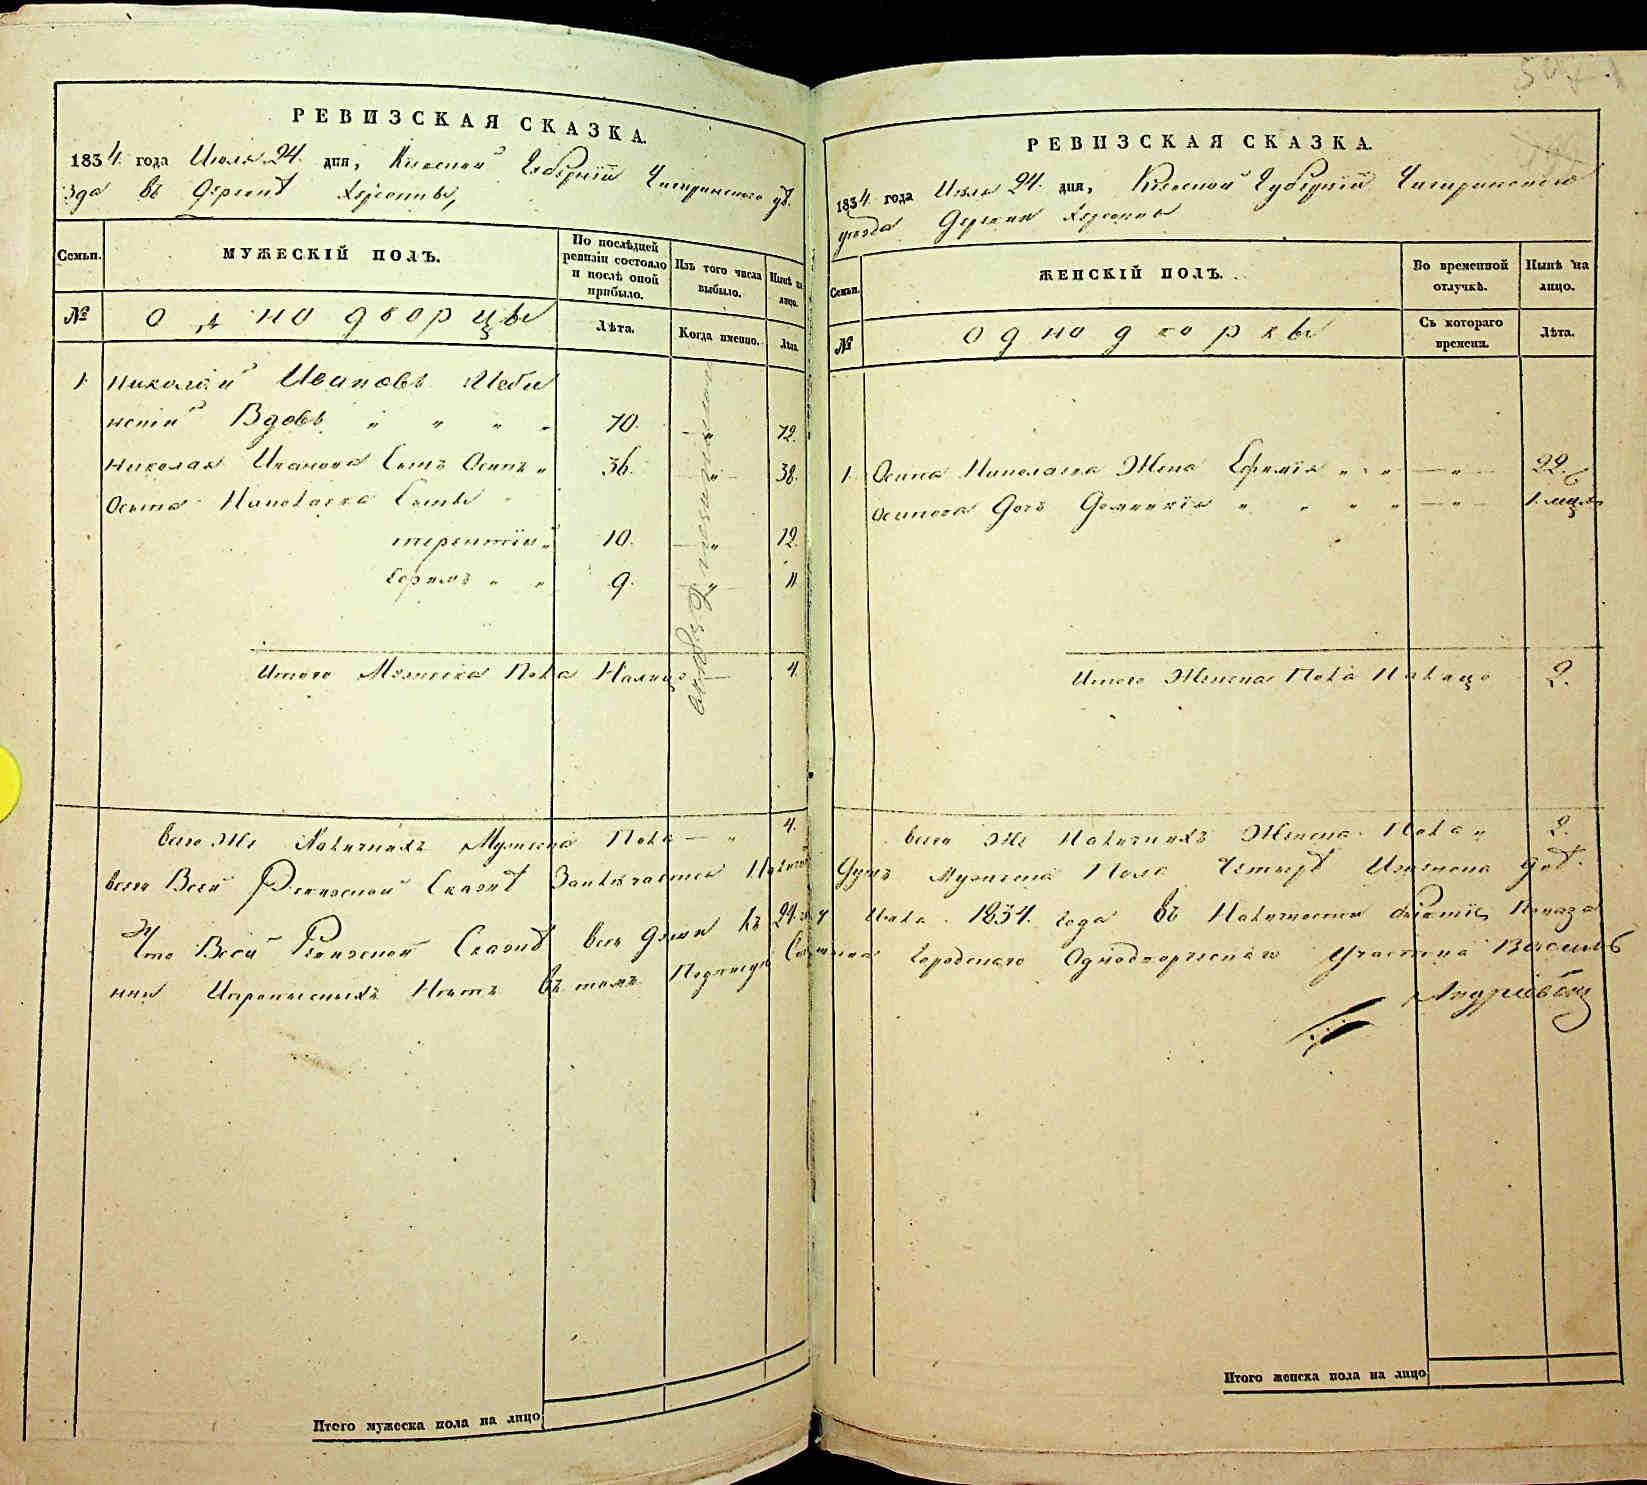 РЕВИЗСКАЯ СКАЗКА.
1834 года Июля 24. дня, Киевской Губерніи Чигринского уѣ
зда въ Деревнѣ Херсонкѣ
Семьи.
МУЖЕСКІЙ ПОЛЪ.
По послѣдней ревизіи состояло и послѣ оной прибыло.
Изъ того числа выбыло.
Нынѣ на лицо.
№
однодворцы
Лѣта.
Когда именно.
Лѣта.
1. Николай Ивановъ
Вдовъ " " " " 70. — " 72.
Николая Иванова Сынъ Осипъ " 36. — " — 38.
Осипа Николаева Сыны "
терентій " 10. — " 12.
Ефимъ " " 9. " 11
Итого Мужеска Пола Налицо — 4.
Всего Же Наличныхъ Мужеска Пола — " 4.
всего Всей Ревизской Сказкѣ Заключается
Что Всей Ревизской Сказкѣ всѣ Души къ 24. му
нии Ипрописныхъ Нѣтъ Въ томъ Подписуюсь
Итого мужеска пола на лицо
РЕВИЗСКАЯ СКАЗКА.
1834 года Июля 24. дня, Киевской Губерніи Чигринского
уезда Деревни Херсонки
Семьи.
ЖЕНСКІЙ ПОЛЪ.
Во временной отлучкѣ.
Нынѣ на лицо.
№
однодворки
Съ котораго времени.
Лѣта.
1. Осипа Николаева Жена Ефимія " " " — " — 22.
Осипова Дочь " " " " — " — 1. мцъ
Итого Женска Пола Налицо 2.
Всего Же Наличныхъ Женска Пола " 2.
Душъ Мужеска Пола Четыре Иженска двѣ.
Июля 1834. года Въ Наличности Показа
Городского Однодворческаго Участка Василь
Андріевскій
Итого женска пола на лицо